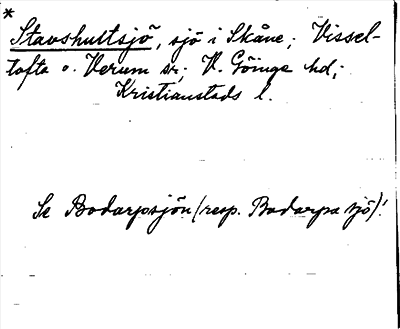 *
Stavshultsjö, sjö i Skåne; Vissel-
tofta o. Verum snr; V. Göinge hd;
Kristianstads l.
Se Bodarpsjön (resp. Bodarpa sjö)!